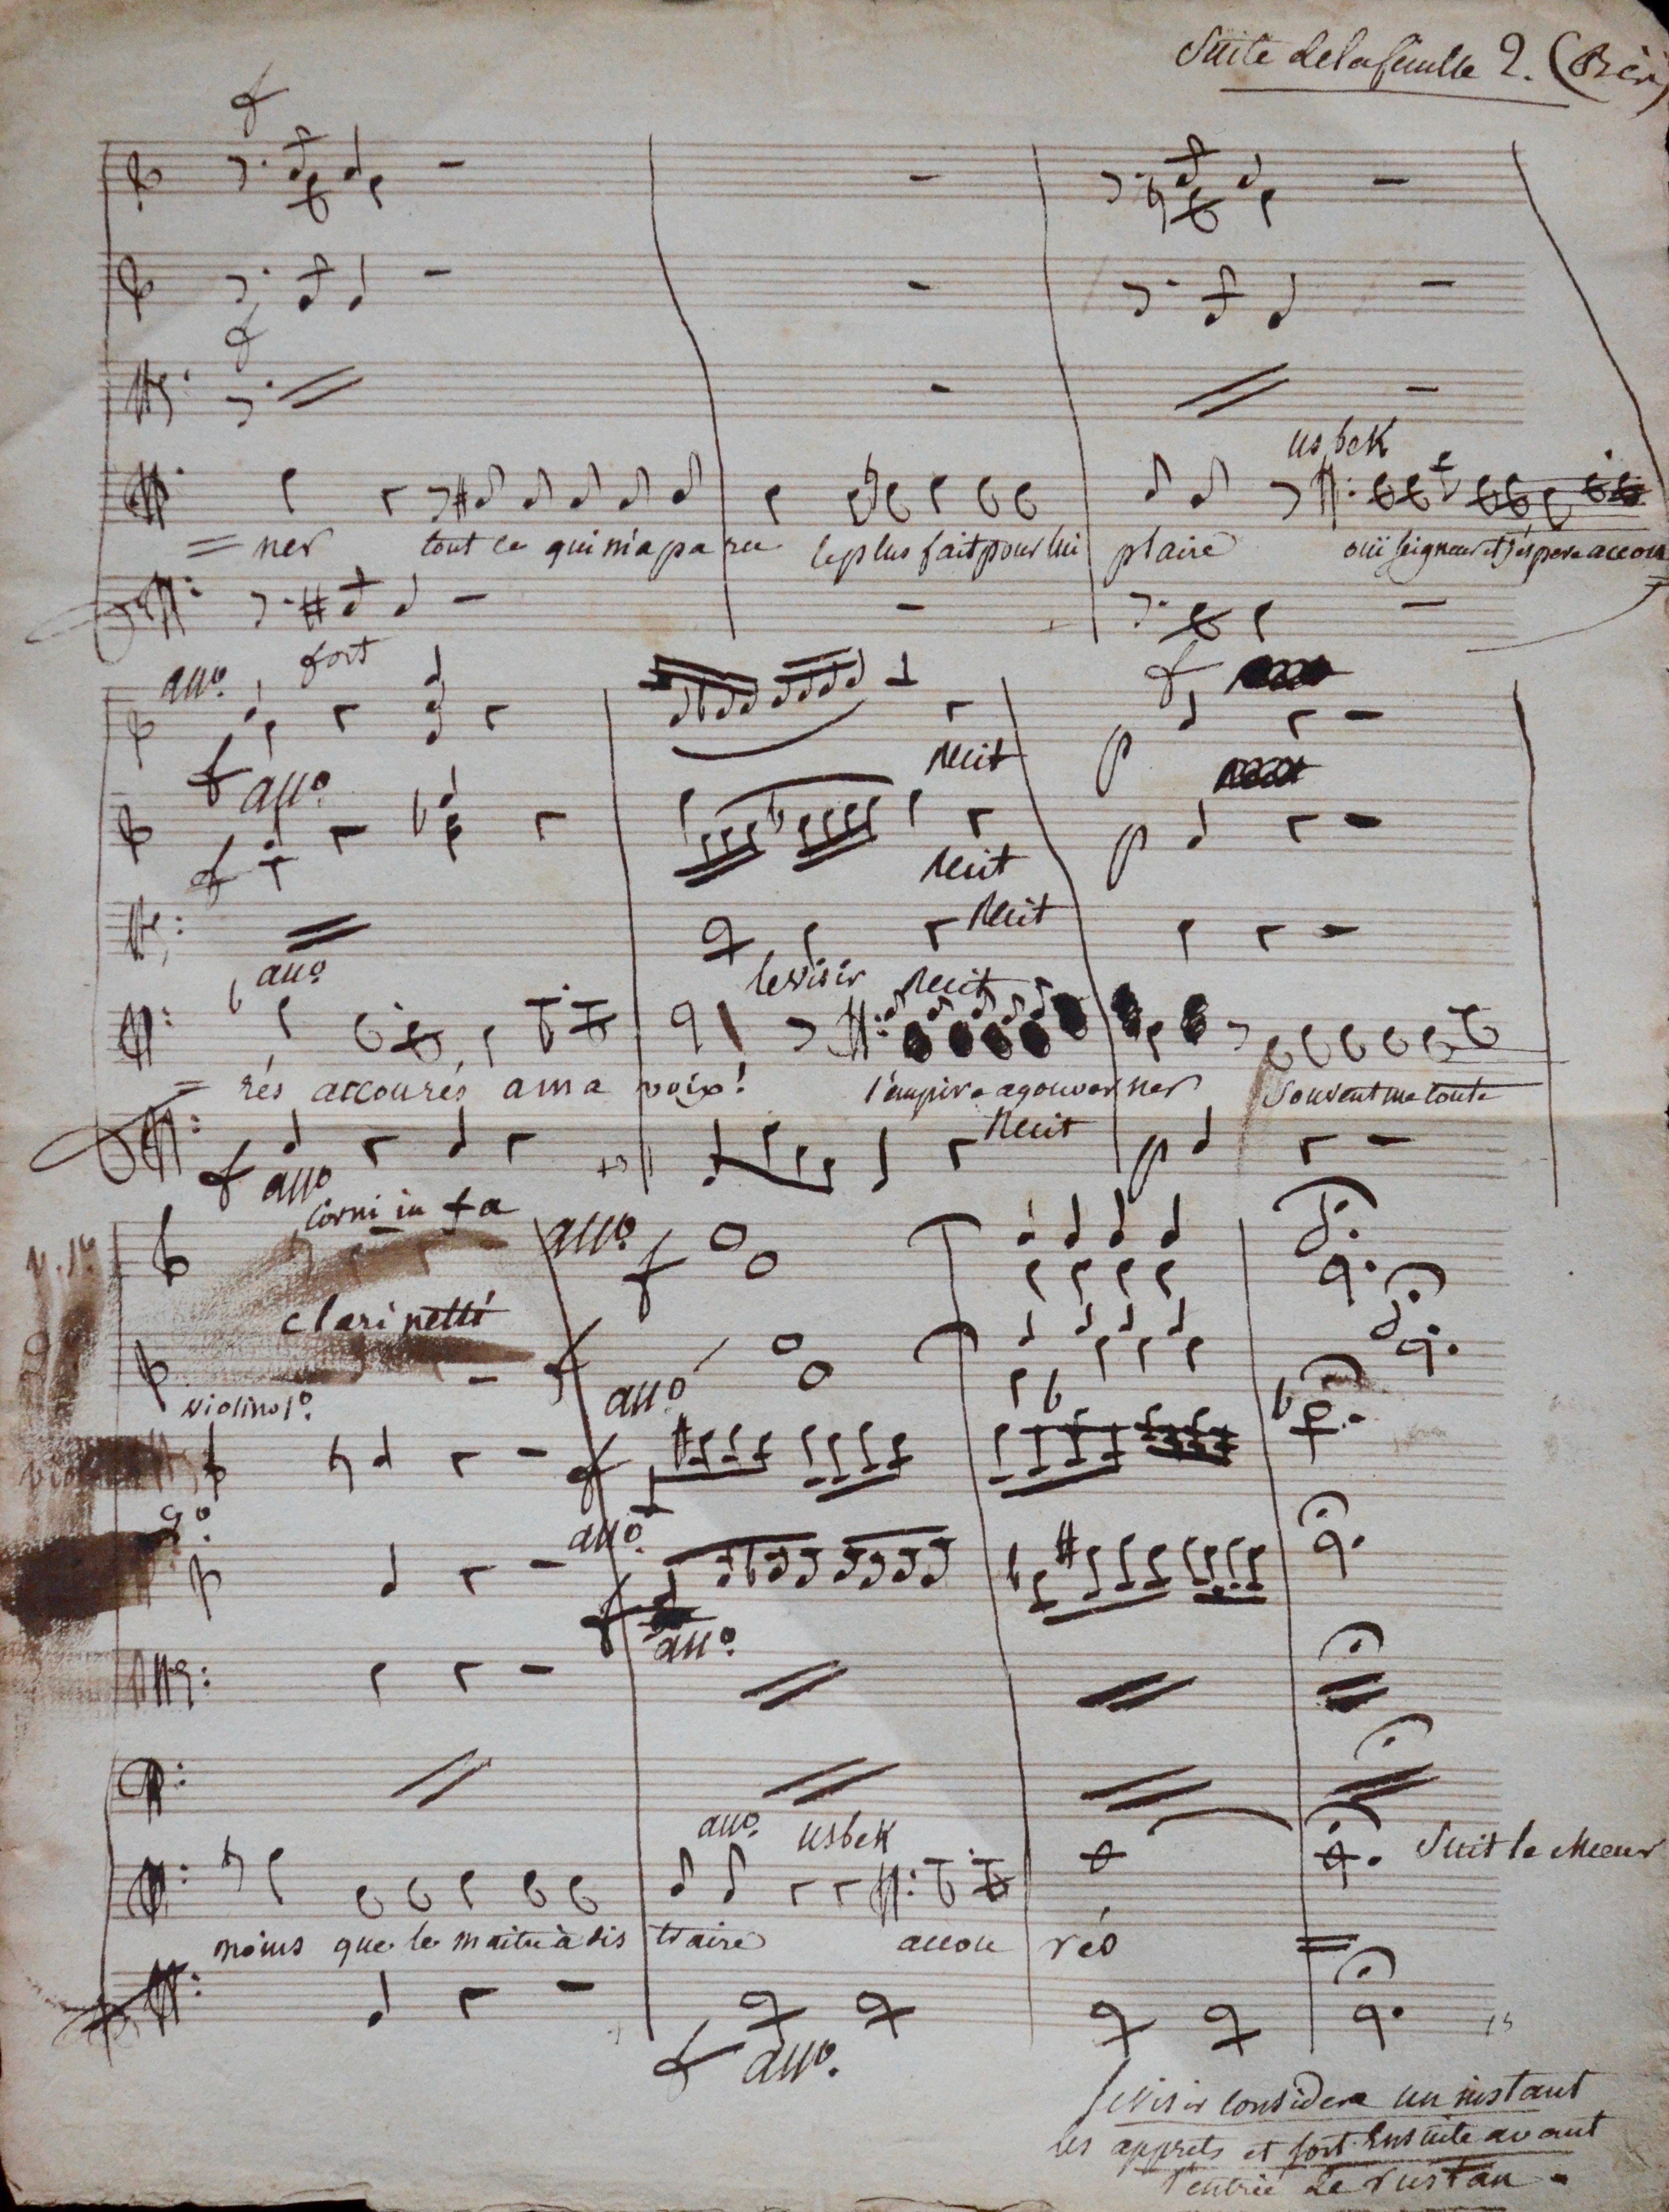 Suite de la feuille 2. (Bis)
f
f
usbek
= ner tout ce qui m'a paru le plus fait pour lui plaire oui seigneur et j'espere accou
fort
f
all°.
f
all°
récit
p
f
récit
p
récit
all°
le visir récit
= rés accourés a ma voix! l'empire a gouverner souvent me coute
récit
f all°
p
corni in fa
all°.
f
v. 1°.
clarinetti
all°
f
violino 1°.
f
2°.
all°.
f
all°.
all°. usbek
suit le choeur
moins que le maitre à distraire accou rés =
f all°.
le visir considere un instant
les apprets et sort ensuite avant
l'entrée de rustan.